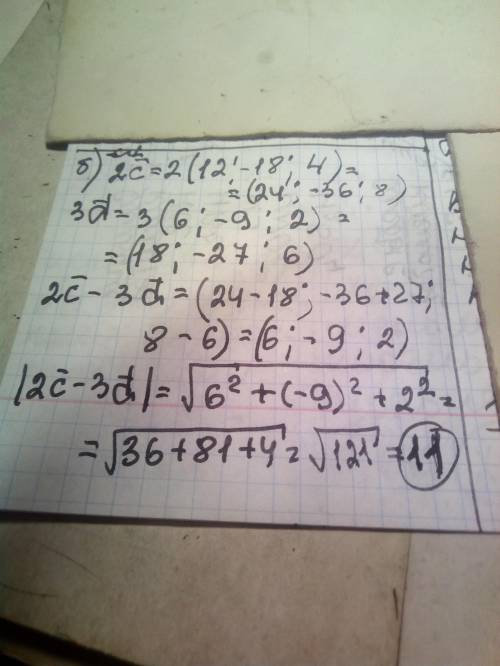 б) 2c̄ = 2(12; -18; 4) =
= (24; -36; 8)
3d̄ = 3(6; -9; 2) =
= (18; -27; 6)
2c̄ - 3d̄ = (24-18; -36+27;
8-6) = (6; -9; 2)
|2c̄ - 3d̄| = √6² + (-9)² + 2² =
= √36+81+4 = √121 = 11